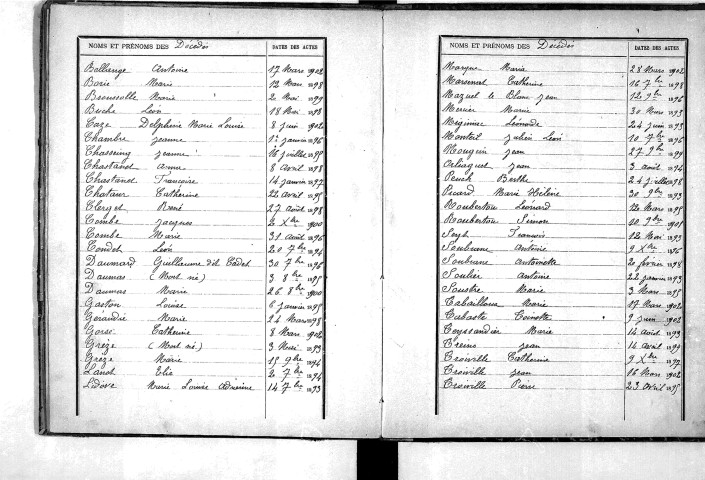 NOMS ET PRÉNOMS DES Décédés DATES DES ACTES
Bellange Antoine 17 Mars 1902
Borie Marie 12 Mars 1898
Broussolle Marie 2 Mai 1899
Buche Léon 18 Mai 1898
Caze Delphine Marie Louise 8 juin 1902
Chambre Jeanne 1er janvier 1896
Chasseing Jeanne 16 juillet 1895
Chastanet Anna 8 avril 1898
Chastanet Françoise 14 janvier 1897
Chataur Catherine 22 avril 1895
Clergot René 27 Août 1898
Combe Jacques 2 Xbre 1900
Combe Marie 31 août 1896
Condet Léon 20 7bre 1894
Daumard Guillaume dit Cadet 30 7bre 1896
Daumas (Mort né) 3 8bre 1895
Daumas Marie 26 8bre 1900
Gaston Louise 6 janvier 1895
Geraudie Marie 24 Mars 1898
Gorse Catherine 8 Mars 1902
Grèze (Mort né) 3 Mai 1893
Grèze Marie 15 9bre 1894
Lanot Elie 2 7bre 1894
Lidove Marie Louise 14 7bre 1893
NOMS ET PRÉNOMS DES Décédés DATES DES ACTES
Marque Marie 28 Mars 1902
Marsenat Catherine 16 7bre 1898
Mazuel le Blanc Jean 12 9bre 1896
Mercier Marie 30 Mars 1893
Miginiac Léonarde 24 juin 1893
Monteil Julien Léon 10 7bre 1896
Mouguin Jean 27 9bre 1894
Orliaguet Jean 3 août 1894
Peuch Berthe 24 juillet 1898
Picard Marie Hélène 30 9bre 1893
Rouberton Léonard 12 Mars 1895
Rouberton Simon 10 9bre 1901
Serph François 12 Mai 1893
Soubrane Antoine 9 Xbre 1896
Soubrane Antoinette 20 février 1898
Soulier Antoine 22 janvier 1893
Soustre Marie 3 Mars 1895
Tabaillou Marie 17 Mars 1902
Tabaste Toinette 9 juin 1902
Teyssandier Marie 14 août 1893
Treine Jean 14 avril 1894
Troiville Catherine 9 Xbre 1897
Troiville Jean 16 Mars 1902
Troiville Pierre 23 avril 1895